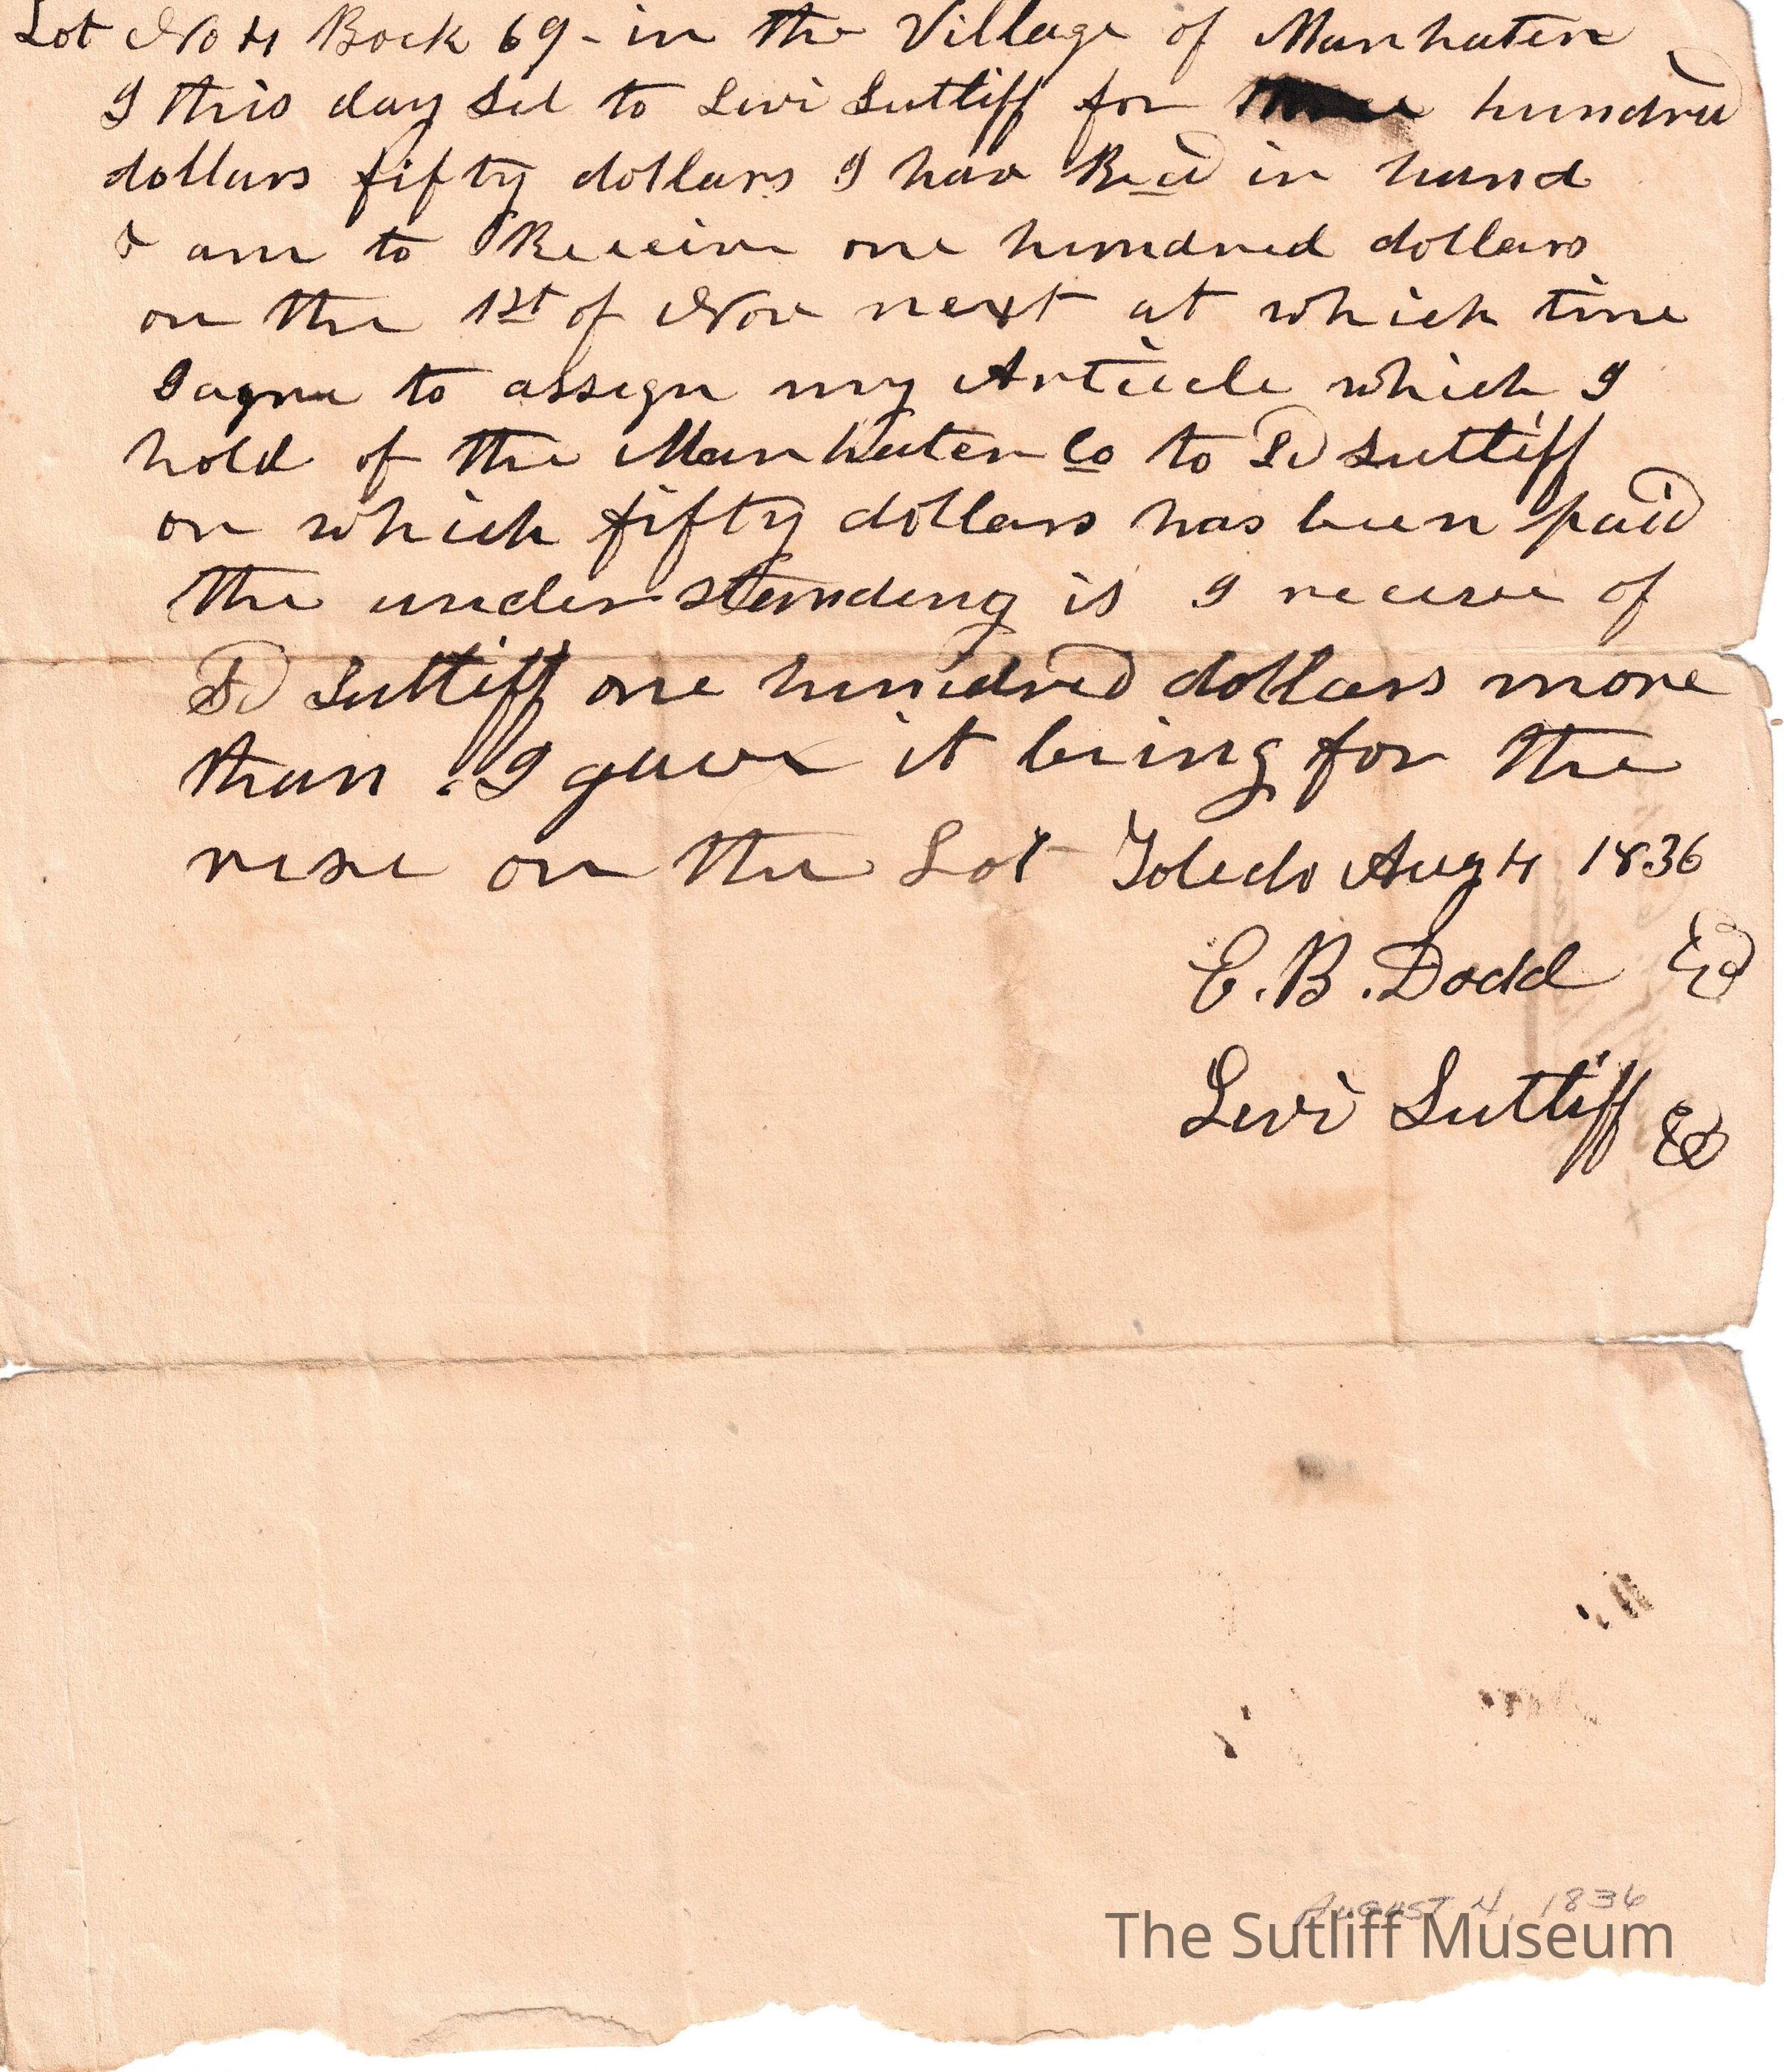 Lot No 4 Bock 69 - in the Village of Manhaten
I this day Sel to Levi Sutliff for hundred
dollars fifty dollars I hav Recd in hand
& am to Receive one hundred dollars
on the 1st of Nov next at which time
I agree to assign my Article which I
hold of the Manhaten Co to Sd Sutliff
on which fifty dollars has been paid
the understanding is I receive of
Sd Sutliff one hundred dollars more
than I gave it being for the
rise on the Lot Toledo Aug 4 1836
E. B. Dodd
Levi Sutliff
August 4, 1836
The Sutliff Museum